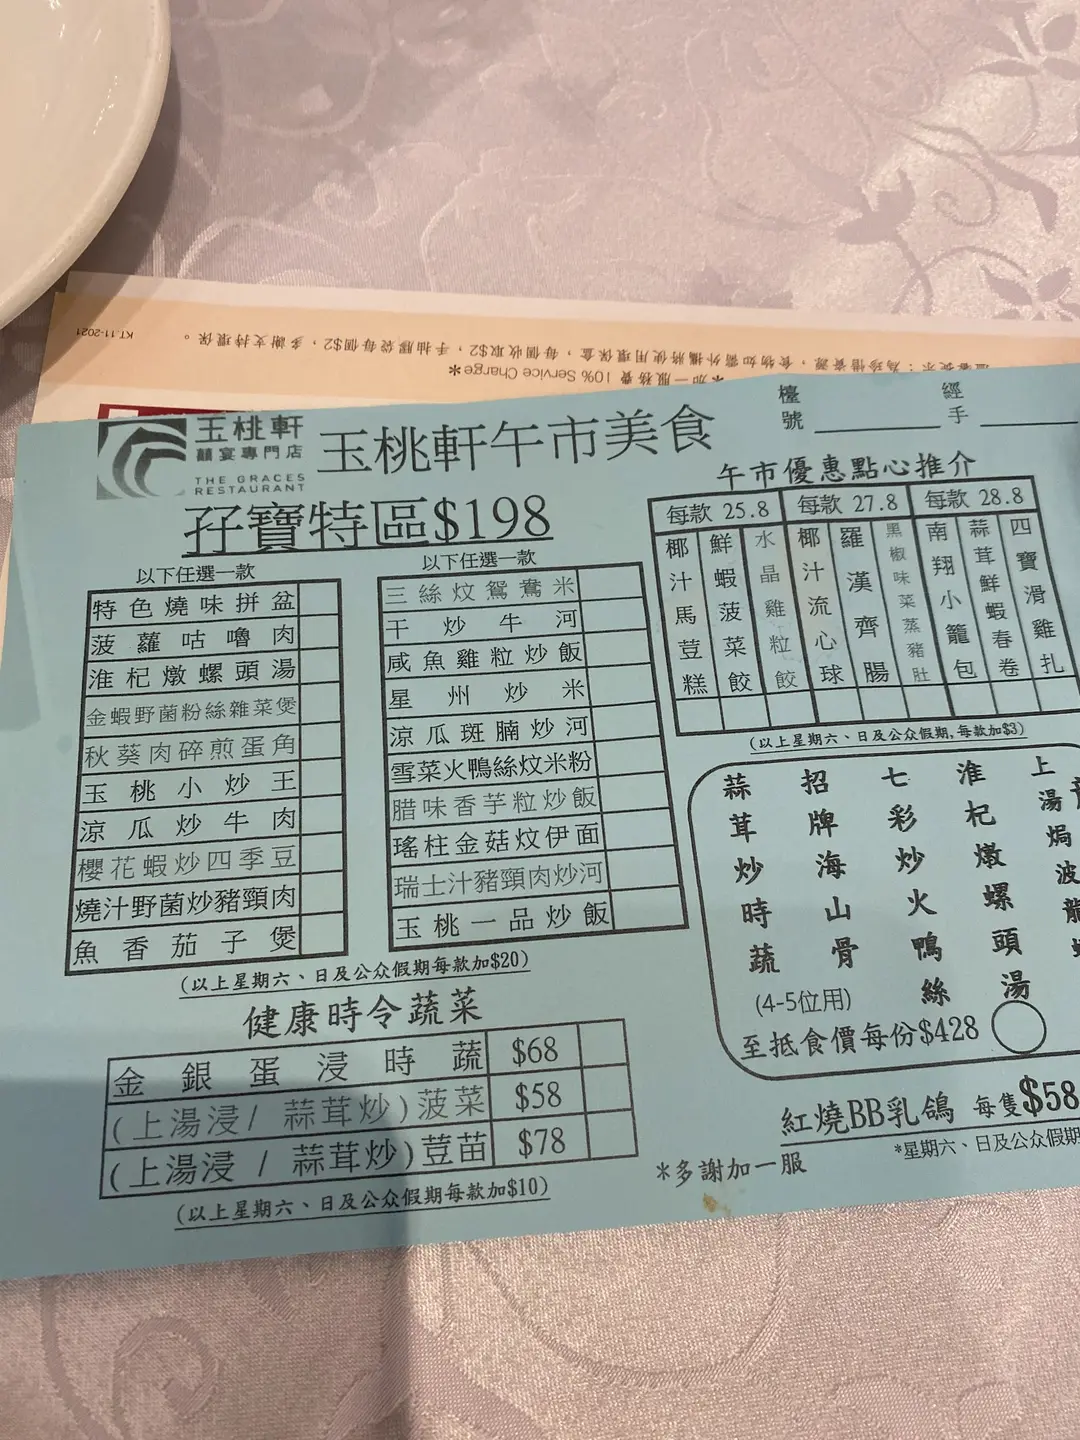 KT.11-2021
溫馨提示：為珍惜資源，食物如需外攜將使用環保盒，每個收取$2，手抽膠袋每個$2，多謝支持環保。
*加一服務費 10% Service Charge*
玉桃軒
囍宴專門店
THE GRACES
RESTAURANT
玉桃軒午市美食
檯號
經手
孖寶特區$198
以下任選一款
特色燒味拼盆
菠蘿咕嚕肉
淮杞燉螺頭湯
金蝦野菌粉絲雜菜煲
秋葵肉碎煎蛋角
玉桃小炒王
涼瓜炒牛肉
櫻花蝦炒四季豆
燒汁野菌炒豬頸肉
魚香茄子煲
以下任選一款
三絲炆鴛鴦米
干炒牛河
咸魚雞粒炒飯
星州炒米
涼瓜斑腩炒河
雪菜火鴨絲炆米粉
腊味香芋粒炒飯
瑤柱金菇炆伊面
瑞士汁豬頸肉炒河
玉桃一品炒飯
(以上星期六、日及公众假期每款加$20)
健康時令蔬菜
金銀蛋浸時蔬 $68
(上湯浸/蒜茸炒)菠菜 $58
(上湯浸/蒜茸炒)荳苗 $78
(以上星期六、日及公众假期每款加$10)
午市優惠點心推介
每款 25.8
每款 27.8
每款 28.8
椰汁馬荳糕
鮮蝦菠菜餃
水晶雞粒餃
椰汁流心球
羅漢齊腸
黑椒味菜蒸豬肚
南翔小籠包
蒜茸鮮蝦春卷
四寶滑雞扎
(以上星期六、日及公众假期,每款加$3)
蒜茸炒時蔬
招牌海山骨
七彩炒火鴨絲
淮杞燉螺頭湯
上湯焗波龍
(4-5位用)
至抵食價每份$428
紅燒BB乳鴿 每隻$58
*星期六、日及公众假期
*多謝加一服